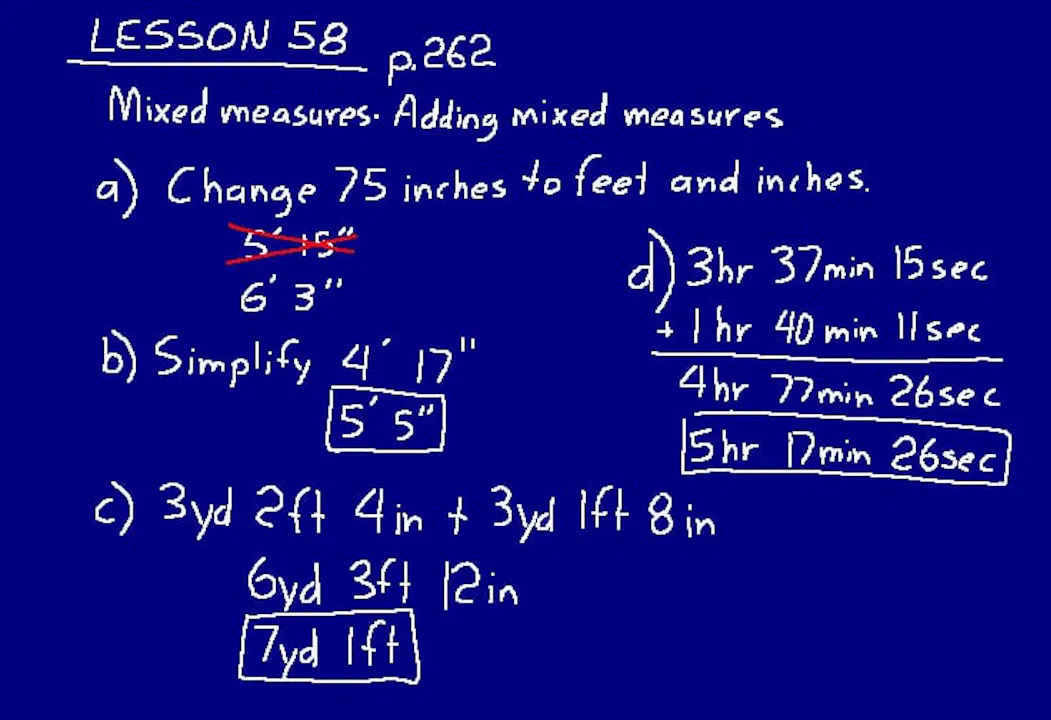 LESSON 58 p.262
Mixed measures. Adding mixed measures
a) Change 75 inches to feet and inches.
5' 15"
6' 3"
b) Simplify 4' 17"
5' 5"
c) 3yd 2ft 4in + 3yd 1ft 8in
6yd 3ft 12in
7yd 1ft
d) 3hr 37min 15sec
+ 1hr 40min 11sec
4hr 77min 26sec
5hr 17min 26sec